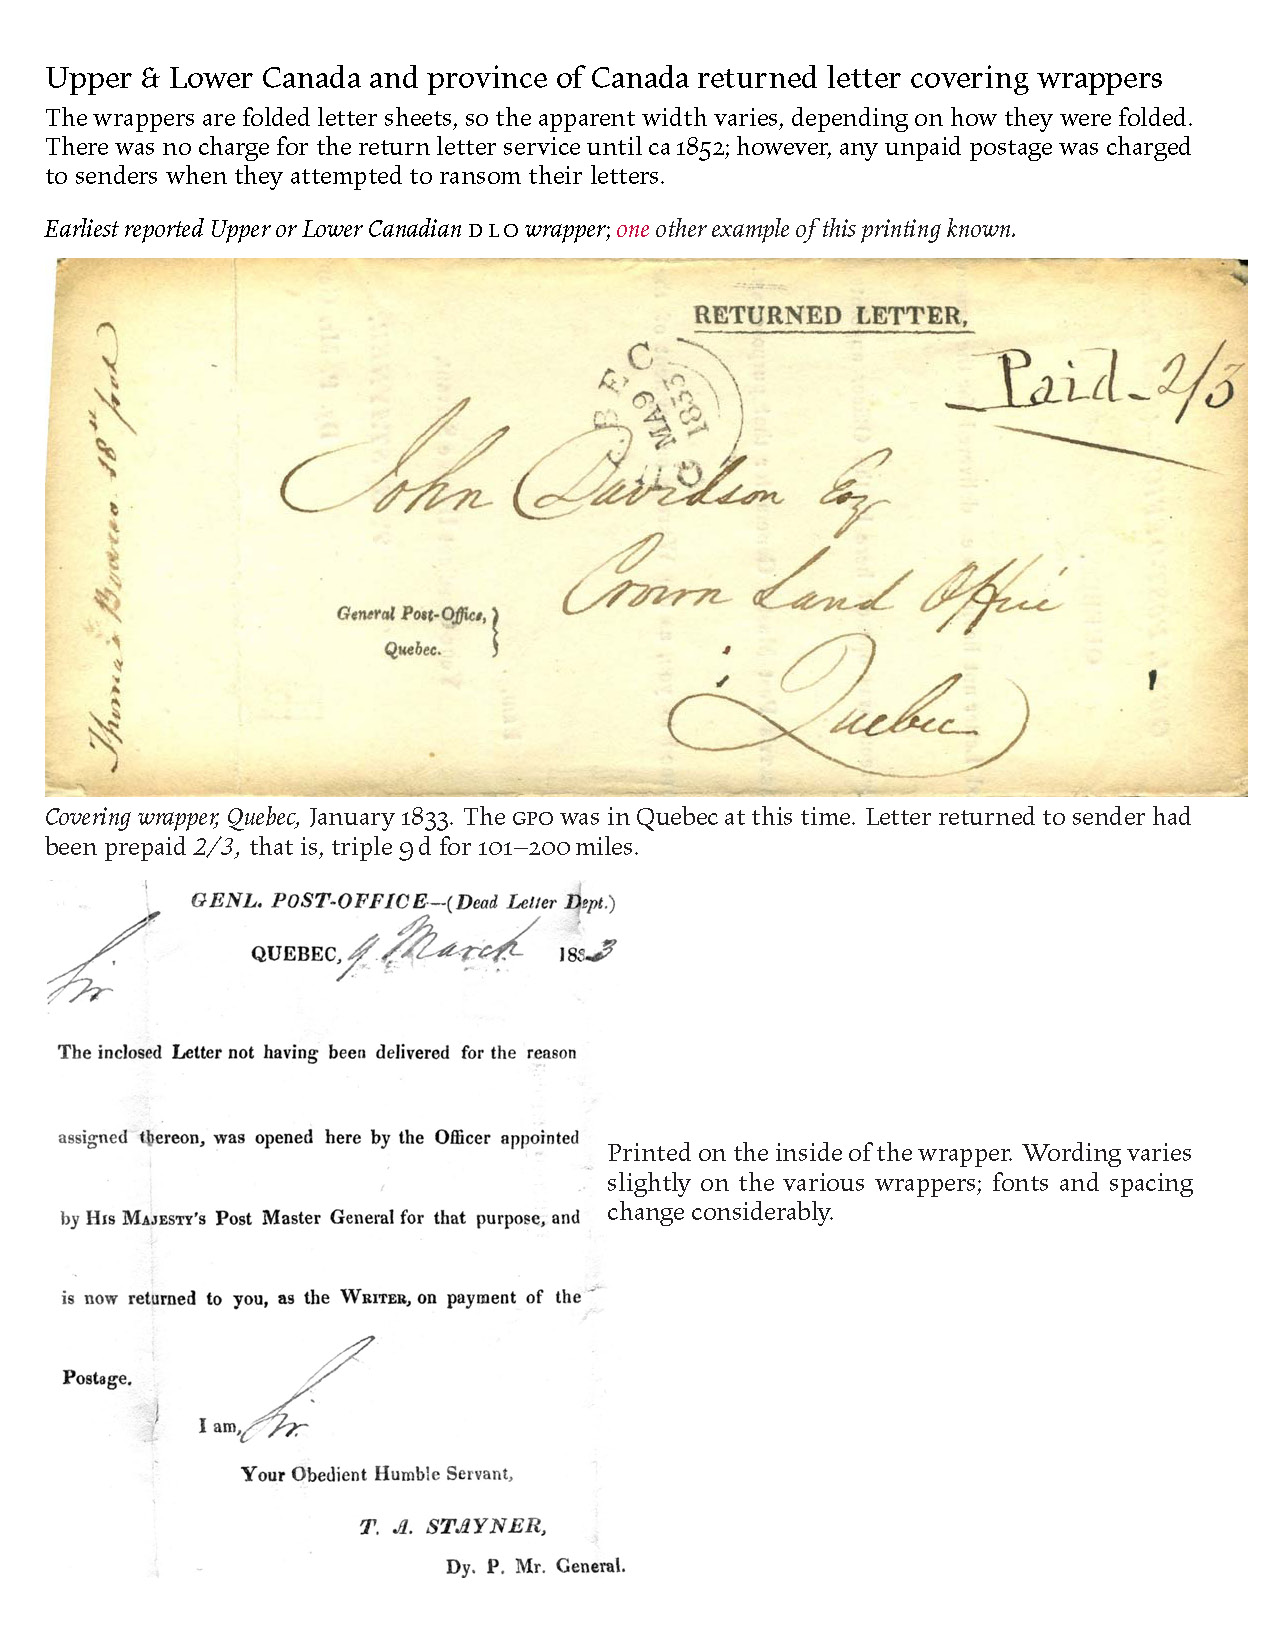 Upper & Lower Canada and province of Canada returned letter covering wrappers
The wrappers are folded letter sheets, so the apparent width varies, depending on how they were folded.
There was no charge for the return letter service until ca 1852; however, any unpaid postage was charged
to senders when they attempted to ransom their letters.
Earliest reported Upper or Lower Canadian DLO wrapper; one other example of this printing known.
RETURNED LETTER,
Paid-2/3
QUEBEC
MA9
183
John Davidson Esq
Crown Land Office
General Post-Office,
Quebec.
Quebec
Thomas 18th
Covering wrapper, Quebec, January 1833. The GPO was in Quebec at this time. Letter returned to sender had
been prepaid 2/3, that is, triple 9 d for 101–200 miles.
GENL. POST-OFFICE—(Dead Letter Dept.)
QUEBEC, 9 March 1833
Sir
The inclosed Letter not having been delivered for the reason
assigned thereon, was opened here by the Officer appointed
by HIS MAJESTY'S Post Master General for that purpose, and
is now returned to you, as the WRITER, on payment of the
Postage.
Printed on the inside of the wrapper. Wording varies
slightly on the various wrappers; fonts and spacing
change considerably.
I am, Sir.
Your Obedient Humble Servant,
T. A. STAYNER,
Dy. P. Mr. General.